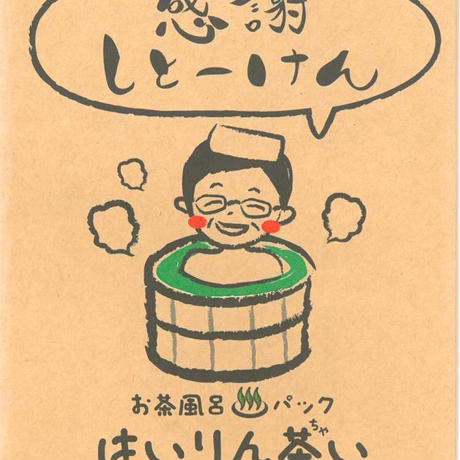 感謝
しとーけん
お茶風呂♨パック
ちゃ
はいりん茶い